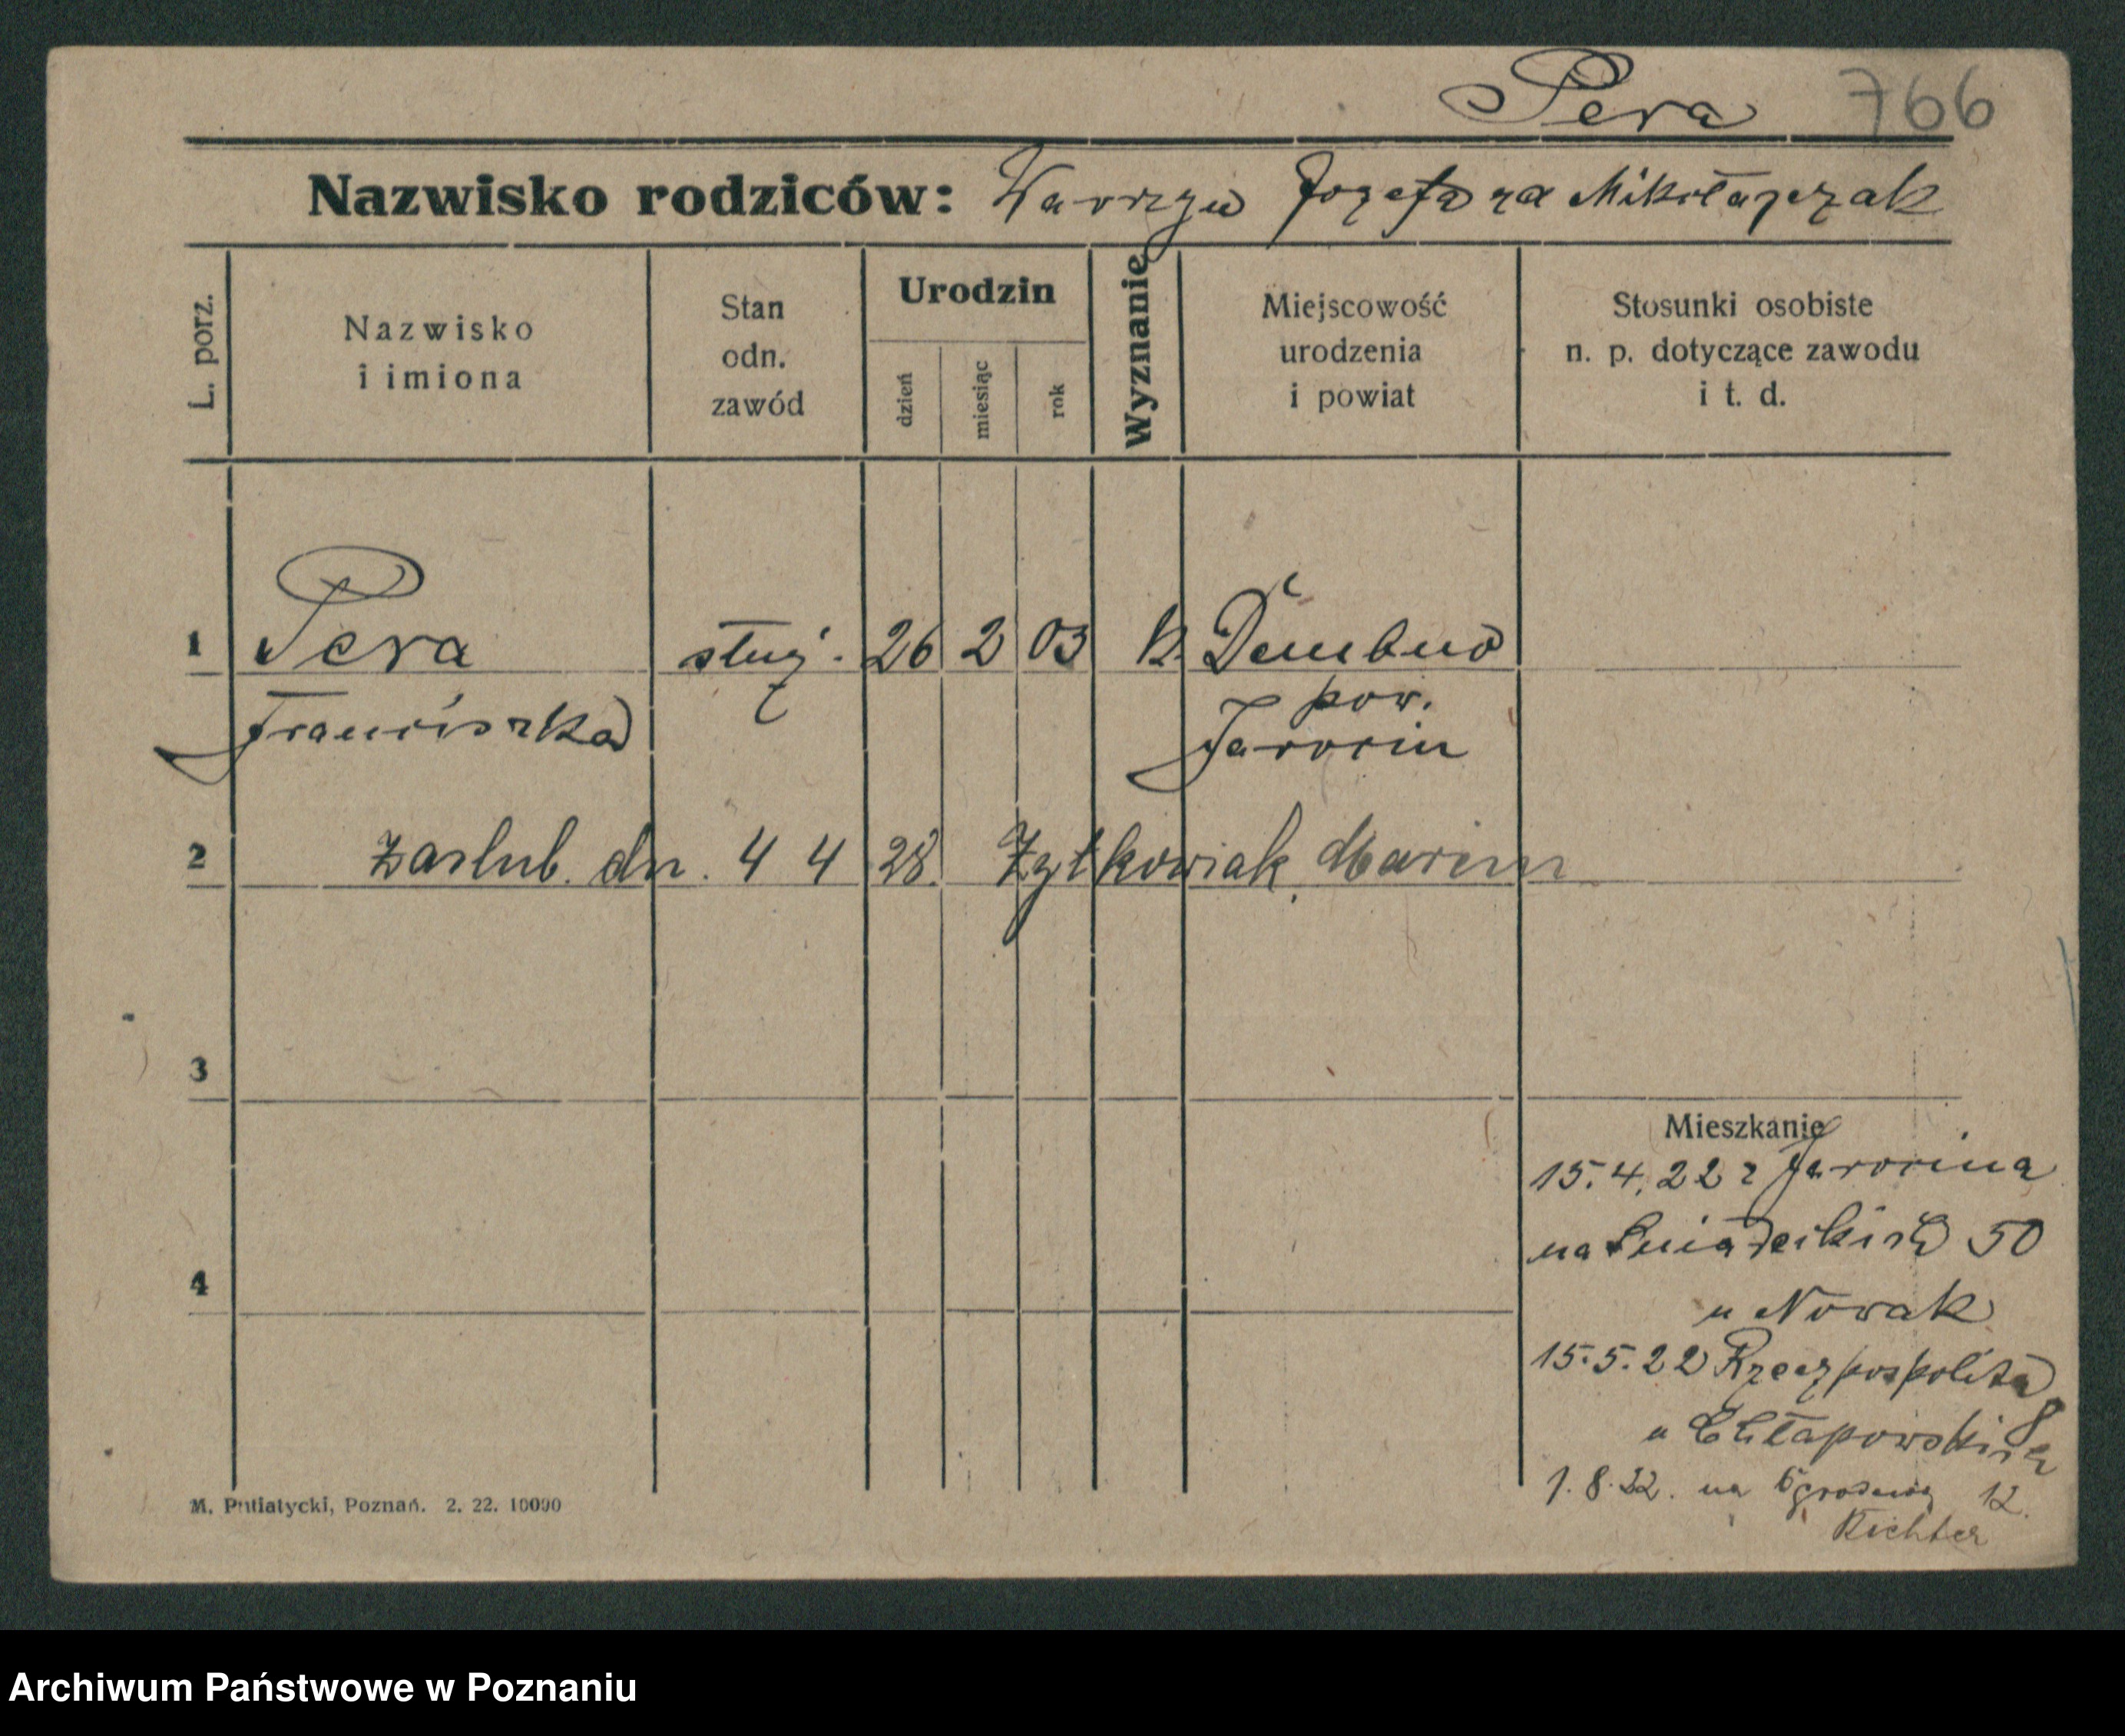 Pera 766
Nazwisko rodziców: Wawrzyn Józefa za Mikołajczak
L. porz.
Nazwisko
i imiona
Stan
odn.
zawód
Urodzin
dzień
miesiąc
rok
Wyznanie
Miejscowość
urodzenia
i powiat
Stosunki osobiste
n. p. dotyczące zawodu
i t. d.
1 Pera służ. 26 2 03 k. Dembno
Franciszka pow.
Jarocin
2 zaslub. dn. 4 4 28. Żytkowiak, Marcin
3
4
Mieszkanie
15.4.22 z Jarocina
na Śniadeckich 50
u Nowak
15.5.22 Rzeczpospolita 8
u Chłapowskich
1.8.22. na Ogrodową 12.
Richter
M. Putiatycki, Poznań. 2. 22. 10000
Archiwum Państwowe w Poznaniu